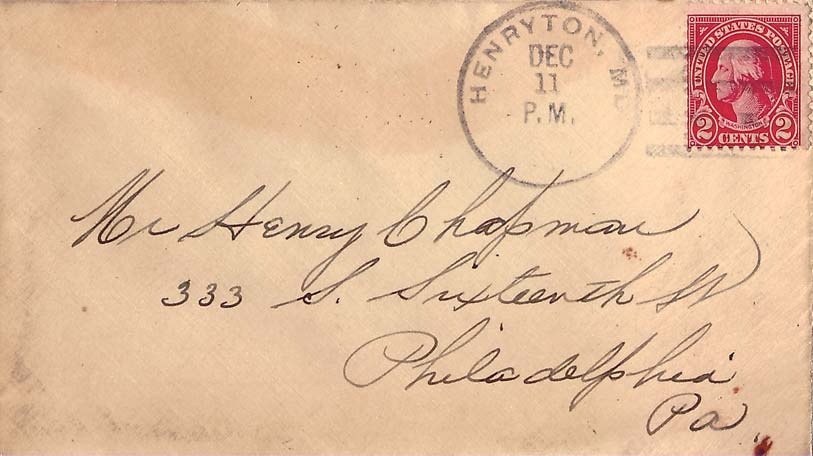 HENRYTON, MD
DEC
11
P.M.
UNITED STATES POSTAGE
WASHINGTON
2 CENTS 2
Mr Henry Chapman
333 S. Sixteenth St
Philadelphia
Pa